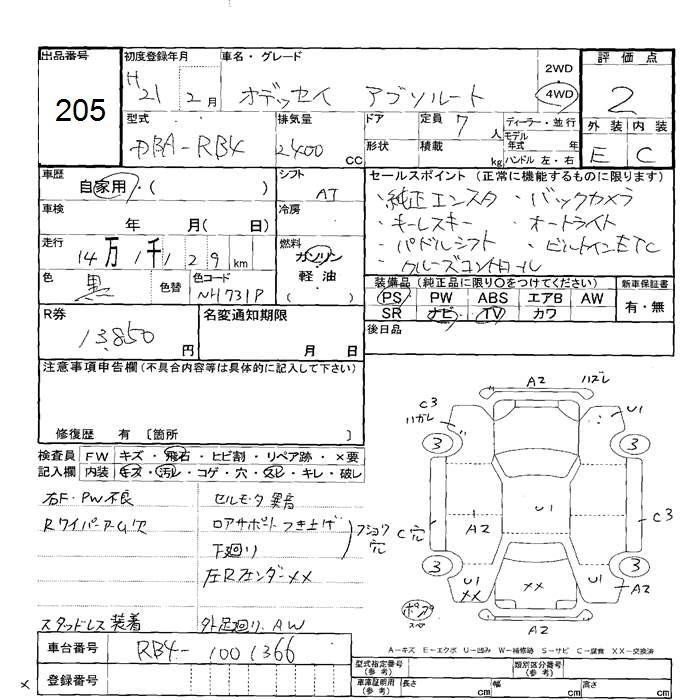 出品番号 初度登録年月 車名・グレード 評価点
205
H 21 2月 オデッセイ アブソルート 2WD 4WD 2
型式 排気量 ドア 定員 7人 ディーラー・並行 外装 内装
DBA-RB4 2400cc 形状 積載 kg モデル年式 年 ハンドル 左・右 E C
車歴 自家用・( ) シフト AT セールスポイント (正常に機能するものに限ります)
・純正エンスタ ・バックカメラ
車検 年 月( 日) 冷房 ・キーレスキー ・オートライト
走行 14万1千129km 燃料 ガソリン 軽油 ( ) ・パドルシフト ・ビルトインETC
・クルーズコントロール
色 黒 色替 色コード NH731P 装備品 (純正品に限り〇をつけてください) 新車保証書
PS PW ABS エアB AW 有・無
SR ナビ TV カワ
R券 13850円 名変通知期限 月 日 後日品
注意事項申告欄(不具合内容等は具体的に記入して下さい)
修復歴 有 〔箇所 〕
検査員 FW キズ・飛石・ヒビ割・リペア跡・×要
記入欄 内装 キズ・汚レ・コゲ・穴・スレ・キレ・破レ
右F・PW不良 セルモータ異音
RワイパーアームG欠 ロアサポートつき上げ
下廻り フショク穴
左Rフェンダー××
スタッドレス装着 外足廻り、AW
A2 ハズレ
C3 ハガレ U1
3 3
U1
C穴 A2 C3
3 3
U1 ×× ×× U1 A2
A2
ポンプ スペ
A-キズ E-エクボ U-凹み W-補修跡 S-サビ C-腐食 XX-交換済
車台番号 RB4-1001366
型式指定番号(参考) 類別区分番号(参考)
× 登録番号
車庫証明用(参考) 長さ cm 幅 cm 高さ cm